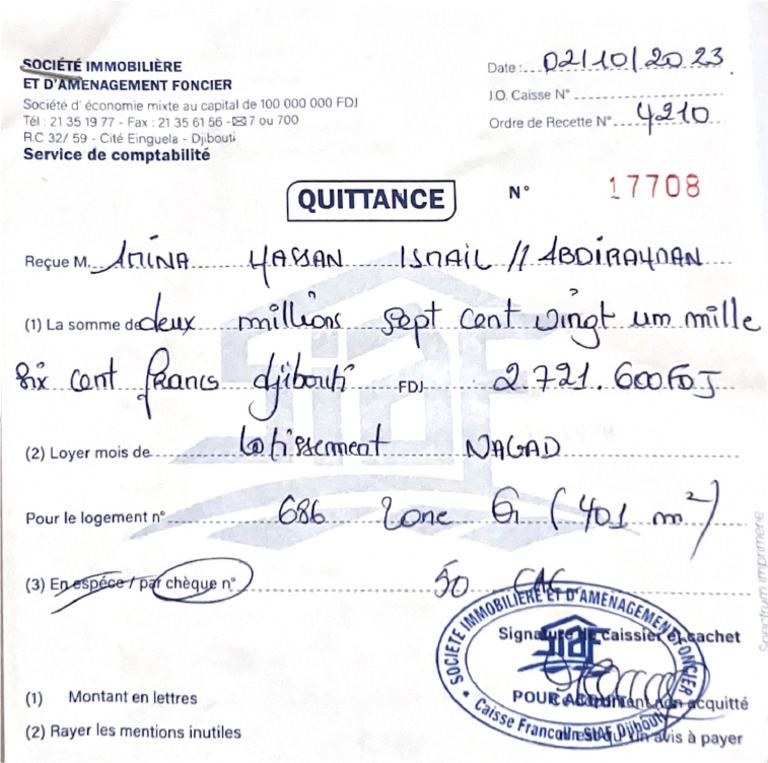 SOCIÉTÉ IMMOBILIÈRE
ET D'AMENAGEMENT FONCIER
Société d' économie mixte au capital de 100 000 000 FDJ
Tél : 21 35 19 77 - Fax : 21 35 61 56 - ✉ 7 ou 700
R.C 32/ 59 - Cité Einguela - Djibouti
Service de comptabilité
Date : 02/10/2023
J.O. Caisse N°
Ordre de Recette N° 4210
QUITTANCE
N° 17708
Reçue M. AMINA HASSAN ISMAIL // ABDIRAHMAN
(1) La somme de deux millions sept cent vingt um mille
six cent francs djibouti FDJ 2.721.600FDJ
(2) Loyer mois de lotissement NAGAD
Pour le logement n° 686 Zone G (401 m²)
(3) En espéce / par chèque n° 50 CAC
Signature de caissier et cachet
SOCIÉTÉ IMMOBILIÈRE ET D'AMENAGEMENT FONCIER
SIAF
POUR ACQUIT
acquitté
Caisse SIAF Djibouti
avis à payer
(1) Montant en lettres
(2) Rayer les mentions inutiles
Spectrum imprimerie
SIAF